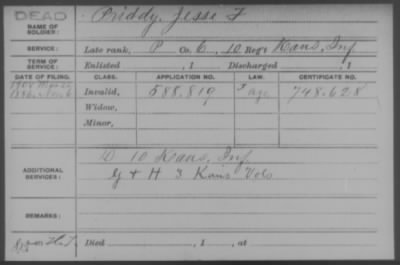 DEAD
NAME OF SOLDIER: Priddy, Jesse F
SERVICE: Late rank, P Co. C, 10 Reg't Kans. Inf
TERM OF SERVICE: Enlisted , 1 Discharged , 1
DATE OF FILING. CLASS. APPLICATION NO. LAW. CERTIFICATE NO.
1886, Nov 6 Invalid, 588.819 age 748.628
Widow,
Minor,
ADDITIONAL SERVICES: D 10 Kans, Inf
G + H 3 Kans Vols
REMARKS:
Died , 1 , at